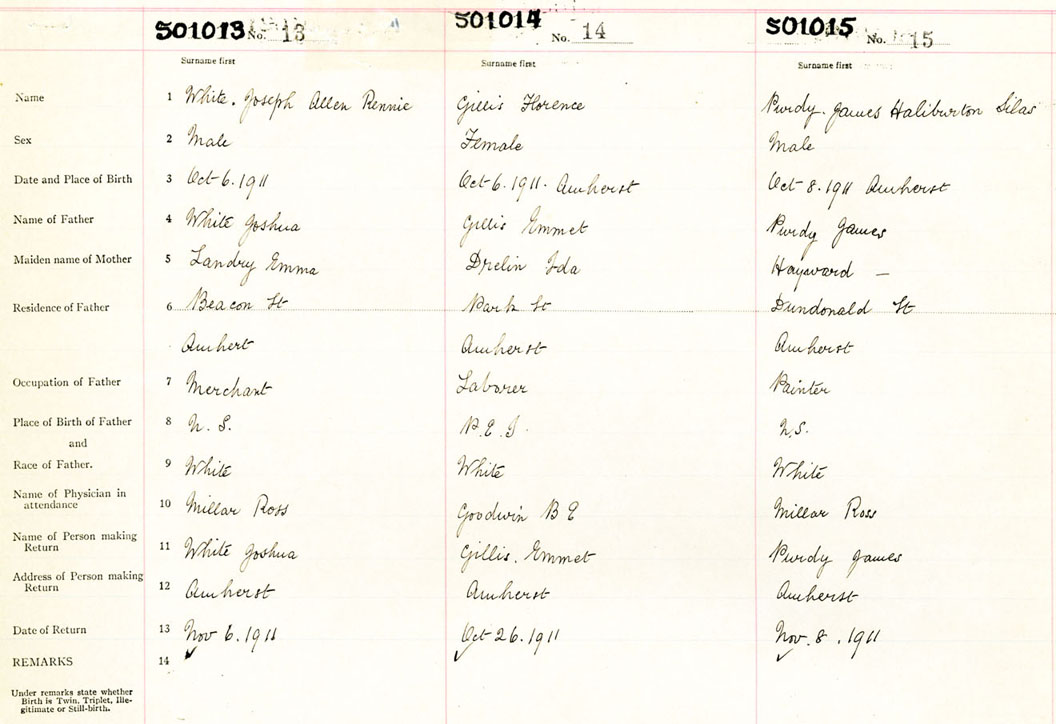 SO1013 No. 13 SO1014 No. 14 SO1015 No. 15
Surname first Surname first Surname first
Name 1 White. Joseph Allen Rennie Gillis Florence Purdy. James Haliburton Silas
Sex 2 Male Female Male
Date and Place of Birth 3 Oct 6. 1911 Oct 6. 1911. Amherst Oct 8. 1911 Amherst
Name of Father 4 White Joshua Gillis Emmet Purdy James
Maiden name of Mother 5 Landry Emma Drelin Ida Hayward —
Residence of Father 6 Beacon St Park St Dundonald St
Amhert Amherst Amherst
Occupation of Father 7 Merchant Laborer Painter
Place of Birth of Father 8 N. S. P. E. I. N.S.
and
Race of Father. 9 White White White
Name of Physician in
attendance 10 Millar Ross Goodwin B E Millar Ross
Name of Person making
Return 11 White Joshua Gillis. Emmet Purdy James
Address of Person making
Return 12 Amherst Amherst Amherst
Date of Return 13 Nov 6. 1911 Oct 26. 1911 Nov. 8. 1911
REMARKS 14
Under remarks state whether
Birth is Twin, Triplet, Ille-
gitimate or Still-birth.